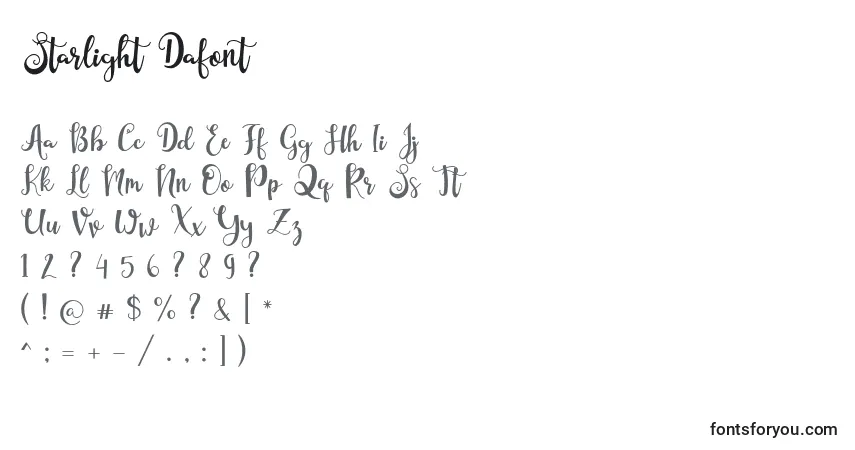 Starlight Dafont
Aa Bb Cc Dd Ee Ff Gg Hh Ii Jj
Kk Ll Mm Nn Oo Pp Qq Rr Ss Tt
Uu Vv Ww Xx Yy Zz
1 2 ? 4 5 6 ? 8 9 ?
( ! @ # $ % ? & [ *
^ ; = + - / . , : ] )
fontsforyou.com